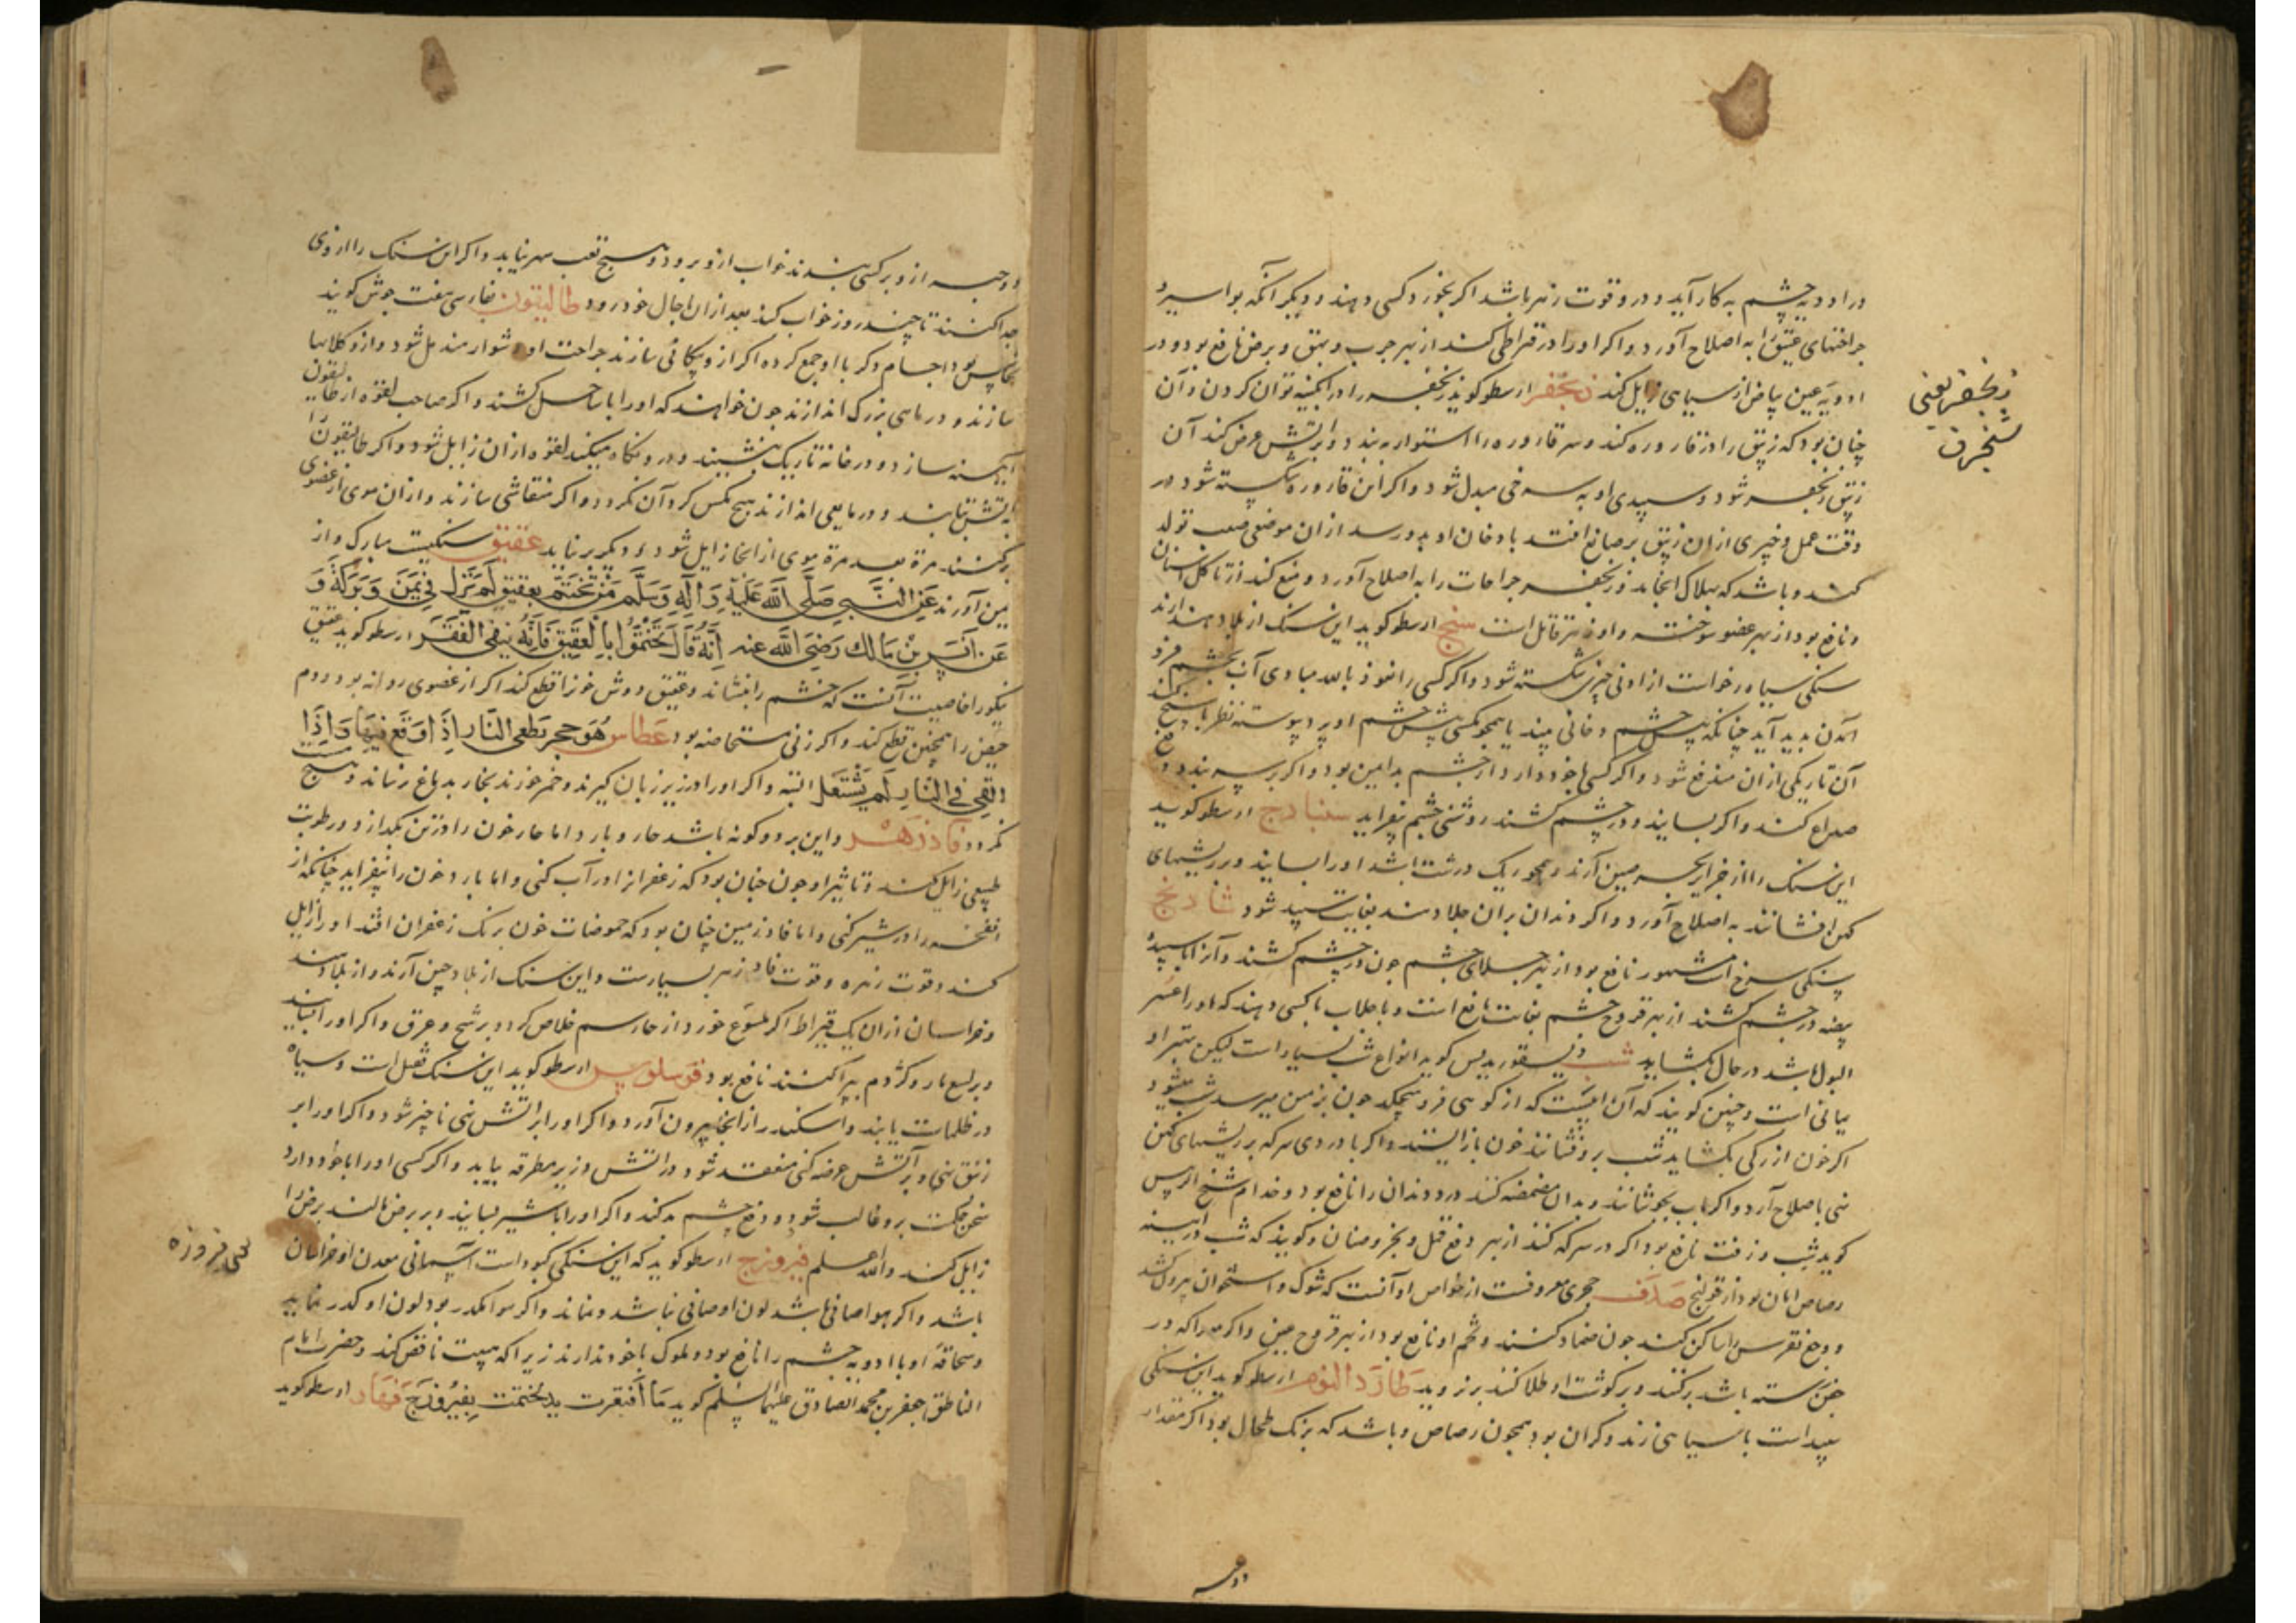 در ادویه چشم به کار آید و درو قوت زهر باشد اگر بخورد کسی دهند و دیگر آنکه بواسیر و
جراحتهای عتیق را به اصلاح آورد و اگر او را در قیراطی کنند از بهر جرب و بهق و برص نافع بود و در
ادویه عین بیاض از سیاهی زایل کند زنجفر ارسطو گوید زنجفر را در آبگینه توان کردن و آن
چنان بود که زیبق را در قاروره کند و سر قاروره را استوار ببندد و بر آتش عرض کند آن
زیبق زنجفر شود و سپیدی او به سرخی مبدل شود و اگر این قاروره شکسته شود در
وقت عمل و چیزی از آن زیبق بر صانع افتد یا دخان او بدو رسد از آن موضعی صعب تولد
کند و باشد که بهلاک انجامد زنجفر جراحات را به اصلاح آورد و منع کند از تاکل اسنان
و نافع بود از بهر عضو سوخته و او زهر قاتل است سبج ارسطو گوید این سنگ از بلاد هند آرند
سنگی سیاه رخو است از ادنی چیزی شکسته شود و اگر کسی را نعوذ بالله مبادی آب بچشم فرود
آمدن بدید آید چنانکه پیش چشم دخانی بیند یا همچو مگسی پیش چشم او پرد پیوسته نظر با سبج کند
آن تاریکی از آن مندفع شود و اگر کسی با خود دارد از چشم بد ایمن بود و اگر بر سر بندد دفع
صداع کند و اگر بسایند و در چشم کشند روشنی چشم بیفزاید سنبادج ارسطو گوید
این سنگ را از جزایر بحر چین آرند و همچو ریگ درشت باشد او را بسایند و بر ریشهای
کهن افشانند به اصلاح آورد و اگر دندان بدان جلا دهند بغایت سپید شود شادنج
سنگی سرخ است مشهور نافع بود از بهر جلای چشم چون در چشم کشند و آنرا با سپیده
بیضه در چشم کشند از بهر قروح چشم بغایت نافع است و با جلاب با کسی دهند که او را عسر
البول باشد در حال بگشاید شب دیسقوریدیس گوید انواع شب بسیار است لیکن بهتر او
یمانی است و چنین گویند که آن آبیست که از کوهی فرو میچکد چون بزمین میرسد شب میشود
اگر خون از رگی بگشاید شب برو فشانند خون باز ایستد و اگر با دردی سرکه بر ریشهای کهن
نهی باصلاح آرد و اگر باب بجوشانند و بدان مضمضه کنند درد دندان را نافع بود و خدام شیخ الرئیس
گوید شب و زفت نافع بود اگر در سرکه کنند از بهر دفع قمل و بخر و صنان و گویند که شب در آبینه
رصاص امان بود از قولنج صدف حجری معروفست از خواص او آنست که شوک و استخوان بیرون کشد
و وجع نقرس را ساکن کند چون ضماد کنند و لحم او نافع بود از بهر قروح عین و اگر مو را که در
جفن رسته باشد برکنند و بر گوشت او طلا کنند برنروید طارد النوم ارسطو گوید این سنگی
سپید است با سیاهی زند و گران بود همچون رصاص و باشد که برنگ طحال بود اگر مقدار
زنجفر یعنی
شنجرف
دو حبه
دو حبه از و بر کسی بندند خواب از و برود و هیچ تعب سهر نیابد و اگر این سنگ را از وی
جدا کنند تا چند روز خواب کند بعد از آن با حال خود رود طالیقون بفارسی هفت جوش گویند
نحاس بود اجسام دگر با او جمع کرده اگر از و پیکانی سازند جراحت او دشوار مندمل شود و از و کلابها
سازند و در ماهی بزرگ اندازند چون خواهند که او را با ساحل کشند و اگر صاحب لقوه از طالیقون
آیینه سازد و در خانه تاریک بنشیند و درو نگاه میکند لقوه از آن زایل شود و اگر طالیقون را
به آتش بتابند و در مایعی اندازند هیچ مگس گرد آن نگردد و اگر منقاشی سازند و از آن موی از عضوی
برکنند مرة بعد مرة موی از آنجا زایل شود و دیگر برنیاید عقیق سنگیست مبارک و از
یمن آرند عن النبی صلی الله علیه و آله و سلم من تختم بعقیق لم یزل فی یمن و برکة و
عن انس بن مالک رضی الله عنه انه قال تختموا بالعقیق فانه ینفی الفقر ارسطو گوید عقیق
نیکو را خاصیت آنست که خشم را بنشاند و عقیق دوش خور را قطع کند اگر از عضوی روانه بود و دم
حیض را همچنین قطع کند و اگر زنی مستحاضه بود عطاس هو حجر یطفی النار اذا وقع فیها و اذا
القی فی النار لم یشتعل البته و اگر او را در زیر زبان گیرند و خمر خورند بخار بدماغ نرساند و مست هیچ
نگردد فادزهر و این بر دو گونه باشد حار و بارد اما حار خون را در تن بگدازد و رطوبت
طبیعی زایل کند و تاثیر او چون چنان بود که زعفران را در آب کنی و اما بارد خون را بیفزاید چنانکه از
انفحه را در شیر کنی و اما فادزهر چنان بود که حموضات خون برنگ زعفران افتد او را زایل
کند و قوت زهره و قوت فادزهر بسیارست و این سنگ از بلاد چین آرند و از بلاد هند
و خراسان از آن یک قیراط اگر ملسوع خورد از حار سم خلاص گردد برشح و عرق و اگر او را بسایند
و بر لسع مار و کژدم پراکنند نافع بود فوسلوس ارسطو گوید این سنگ ثقیل است و سیاه
در ظلمات یابند و اسکندر از آنجا بیرون آورد و اگر او را بر آتش نهی ناچیز شود و اگر او را بر
زیبق نهی و بر آتش عرضه کنی منعقد شود در آتش و زیر مطرقه بیاید و اگر کسی او را با خود دارد
سخن حکمت برو غالب شود و دفع چشم بد کند و اگر او را با شیر بسایند و بر برص مالند برص را
زایل کند والله اعلم فیروزج ارسطو گوید که این سنگی کبود است آسمانی معدن او خراسان
باشد و اگر هوا صافی باشد لون او صافی نباشد و نماند و اگر هوا مکدر بود لون او کدر نماید
و سحاقه او با ادویه چشم را نافع بود و ملوک با خود ندارند زیرا که هیبت ناقص کند و حضرت امام
الناطق جعفر بن محمد الصادق علیهما السلم گوید ما افتقرت ید تختمت بفیروزج فهاد ارسطو گوید
فیروزه